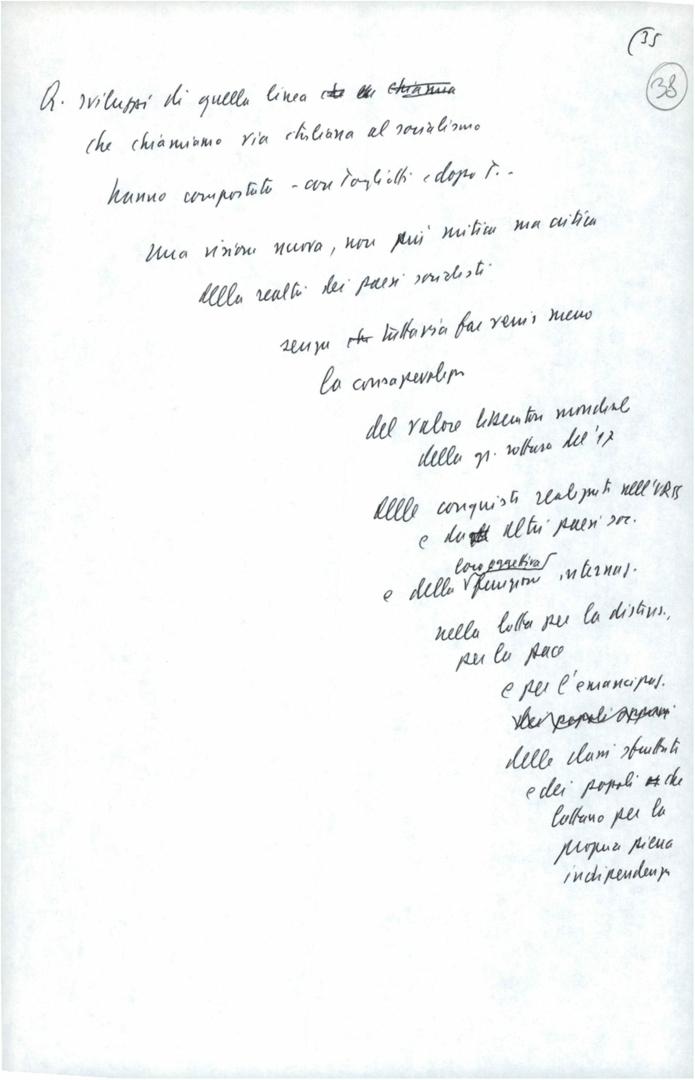 (35
38
Q. sviluppi di quella linea che chiama
che chiamiamo via italiana al socialismo
hanno comportato - con Togliatti e dopo T. -
una visione nuova, non più mitica ma critica
della realtà dei paesi socialisti
senza che tuttavia far venir meno
la consapevolezza
del valore liberatore mondiale
della gr. rottura del '17
delle conquiste realizzate nell'URSS
e da altri paesi soc.
loro oggettiva
e della funzione internaz.
nella lotta per la distens.,
per la pace
e per l'emancipaz.
dei popoli oppressi
delle classi sfruttate
e dei popoli che
lottano per la
propria piena
indipendenza